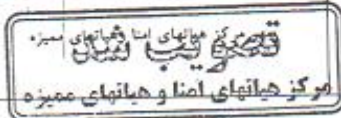 مرکز هیاتهای امنا و هیاتهای ممیزه
مرکز هیاتهای امنا و هیاتهای ممیزه